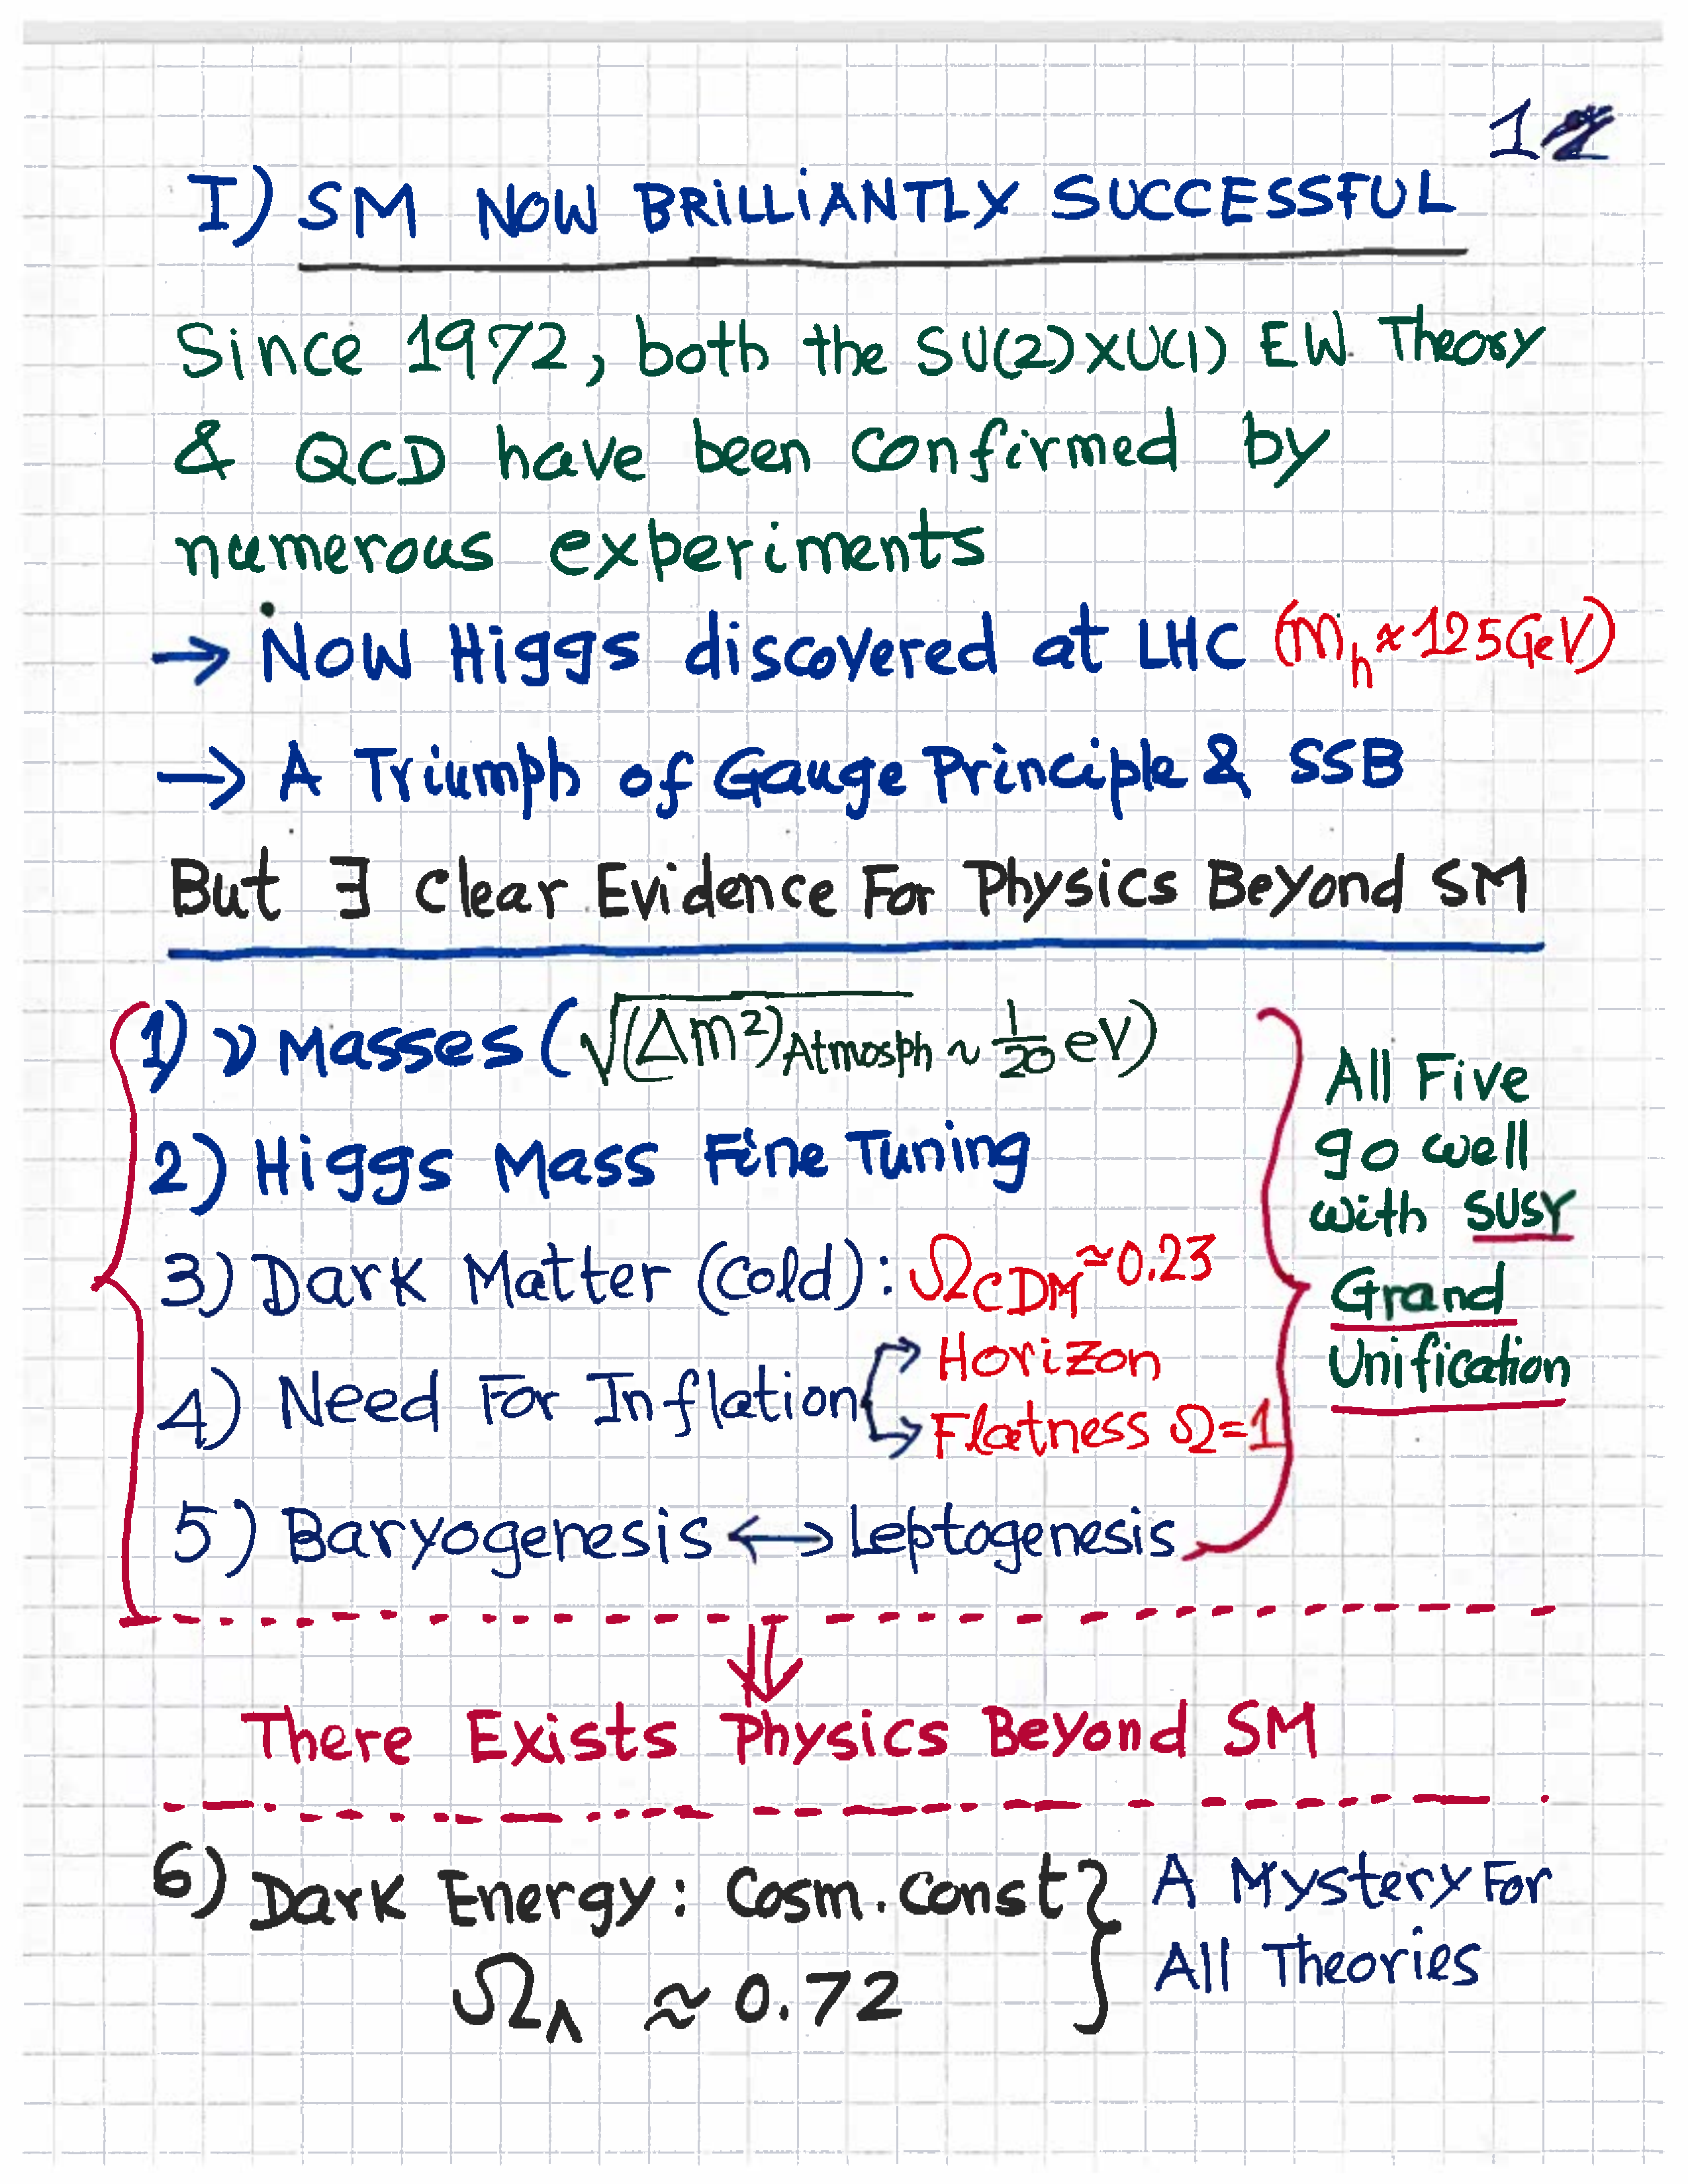 1
I) SM NOW BRILLIANTLY SUCCESSFUL
Since 1972, both the SU(2)XU(1) EW. Theory
& QCD have been confirmed by
numerous experiments
→ Now Higgs discovered at LHC (m_h ≈ 125 GeV)
→ A Triumph of Gauge Principle & SSB
But ∃ Clear Evidence For Physics Beyond SM
1) ν Masses (√(Δm²)Atmosph ~ 1/20 eV)
2) Higgs Mass Fine Tuning
3) Dark Matter (Cold): Ω_CDM ≃ 0.23
4) Need For Inflation
→ Horizon
→ Flatness Ω=1
5) Baryogenesis ↔ Leptogenesis
All Five
go well
with SUSY
Grand
Unification
⇓
There Exists Physics Beyond SM
6) Dark Energy: Cosm. Const
Ω_Λ ≈ 0.72
A Mystery For
All Theories